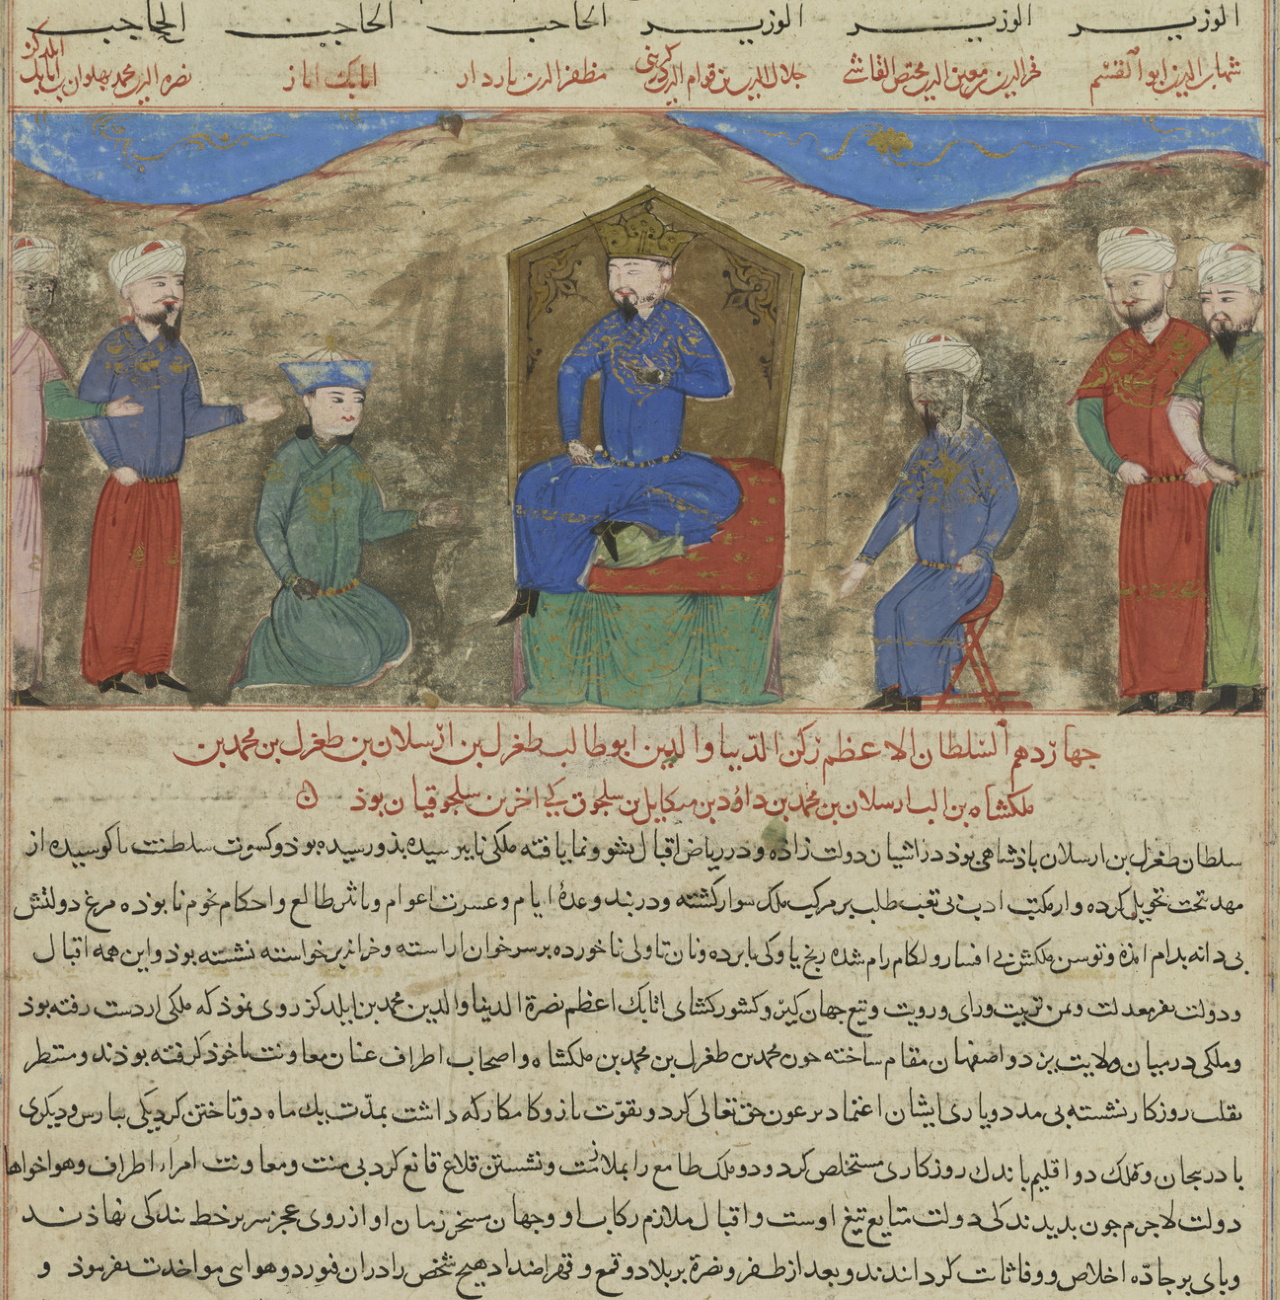 الوزیر الوزیر الوزیر الحاجب الحاجب الحاجب
شهاب الدین ابو القسم فخرالدین بن معین الدین مختص القاشی جلال الدین بن قوام الدین مظفر الدین باردار اتابک ایاز نصرة الدین محمد بهلوان بن اتابک ایلدکز
جهاردهم السلطان الاعظم رکن الدنیا والدین ابوطالب طغرل بن ارسلان بن طغرل بن محمد بن
ملکشاه بن الب ارسلان بن محمد بن داود بن میکایل بن سلجوق کی اخرین سلجوقیان بوذ
سلطان طغرل بن ارسلان باذشاهی بوذ در اشیان دولت زاده و در ریاض اقبال نشو و نما یافته ملکی نابیوسیده بذو رسیده بوذ و کسوت سلطنت ناکوسیده از
مهد بتخت تحویل کرده و از مکتب ادب بی تعب طلب بر مرکب ملک سوار کشته و در بند وعدهٔ ایام و عسرت اعوام و تاثیر طالع و احکام نجوم نابوذه مرغ دولتش
بی دانه بدام امذه و توسن ملکش بی افسار و لکام رام شده رنج باوکی نابرده و نان تاولی ناخورده بر سر خوان اراسته و خزاین برخواسته نشسته بوذ و این همه اقبال
و دولت بفر معدلت و یمن تربیت و رای و رویت و تیغ جهان کیر و کشور کشای اتابک اعظم نصرة الدنیا والدین محمد بن ایلدکز روی نموذ که ملکی از دست رفته بوذ
و ملکی در میان ولایت یزد و اصفهان مقام ساخته جون محمد بن طغرل بن محمد بن ملکشاه و اصحاب اطراف عنان معاونت باخوذ کرفته بوذند و منتظر
تقلب روزکار نشسته بی مدد و یاری ایشان اعتماد بر عون حق تعالی کرد و بقوت بازو کامکار که داشت بمدت یک ماه دو تاختن کرد یکی بپارس و دیکری
باذربیجان و ملک دو اقلیم باندک روزکاری مستخلص کرد و دو ملک طامع را بملازمت و نشستن قلاع قانع کرد بی منت و معاونت امراء اطراف و هواخواهان
دولت لاجرم جون بدیدند کی دولت متابع تیغ اوست و اقبال ملازم رکاب او و جهان مسخر زمان او از روی عجز سر بر خط بندکی نهاذند
و بای بر جاده اخلاص و وفا ثابت کردانیدند و بعد از ظفر و نصرة بر بلاد و قمع و قهر اضداد هیج شخص را در ان فتور دو هوایی مواخذت نفرموذ و